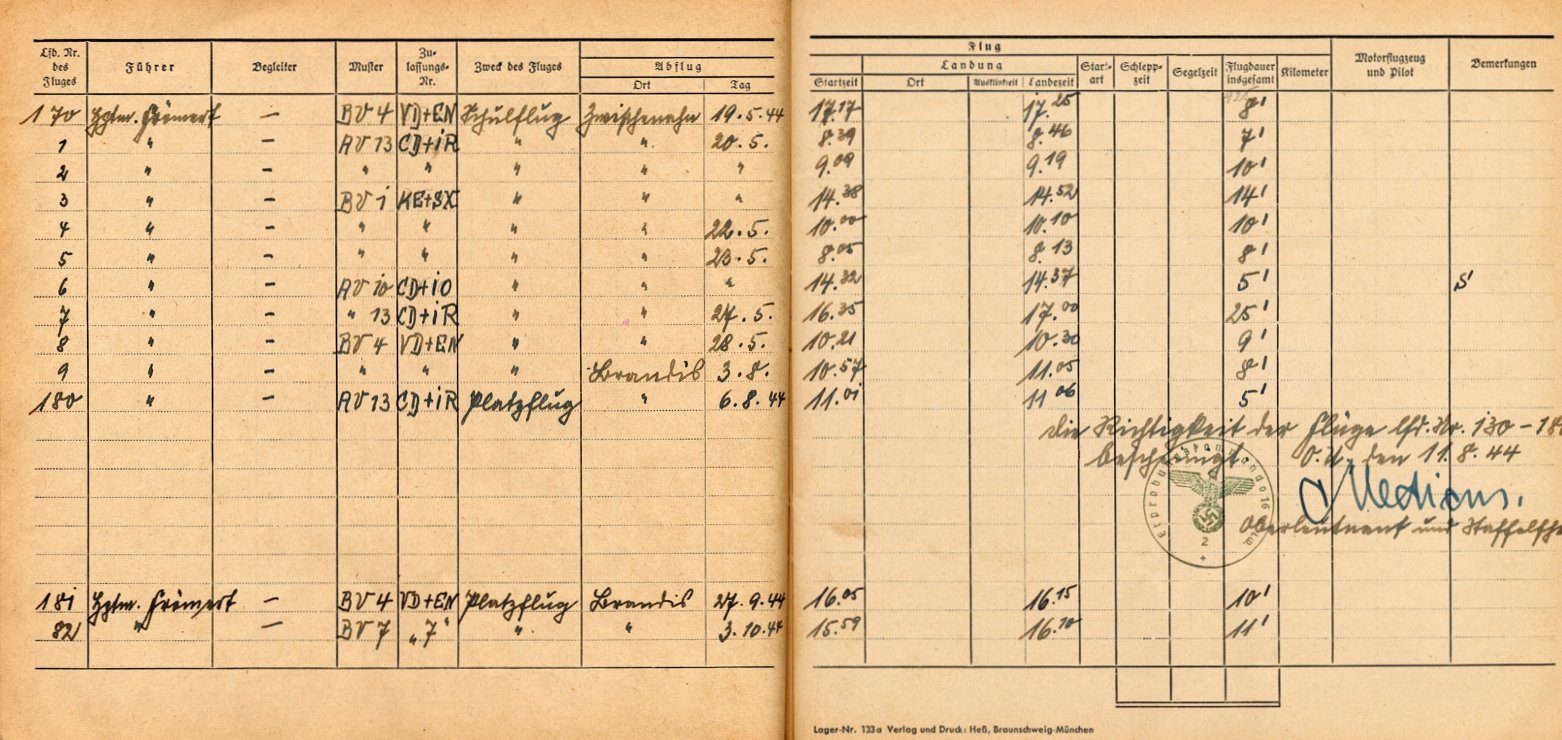 Lfd. Nr. des Fluges Führer Begleiter Muster Zulassungs-Nr. Zweck des Fluges Abflug Ort Tag
Flug
Landung
Startzeit Ort Ausklinkzeit Landezeit Startart Schleppzeit Segelzeit Flugdauer insgesamt Kilometer Motorflugzeug und Pilot Bemerkungen
170 Hptm. Frömert — BV 4 VD+EN Schulflug Zwischenahn 19.5.44 17.17 17.25 8'
1 " — AV 13 CD+iR " " 20.5. 8.39 8.46 7'
2 " — " " " " " 9.09 9.19 10'
3 " — BV i KE+SX " " " 14.38 14.52 14'
4 " — " " " " 22.5. 10.00 10.10 10'
5 " — " " " " 23.5. 8.05 8.13 8'
6 " — AV io CD+iO " " " 14.32 14.37 5' S'
7 " — " 13 CD+iR " " 27.5. 16.35 17.00 25'
8 " — BV 4 VD+EN " " 28.5. 10.21 10.30 9'
9 " — " " " Brandis 3.8. 10.57 11.05 8'
180 " — AV 13 CD+iR Platzflug " 6.8.44 11.01 11 06 5'
Die Richtigkeit der Flüge lfd. Nr. 130 – 18
bescheinigt. O.U. den 11.8.44
Erprobungskommando 16
2
+
Medicus.
Oberleutnant und Staffelche
181 Hptm. Frömert — BV 4 VD+EN Platzflug Brandis 27.9.44 16.05 16.15 10'
82 " — BV 7 "7" " " 3.10.44 15.59 16.10 11'
Lager-Nr. 133a Verlag und Druck: Heß, Braunschweig-München